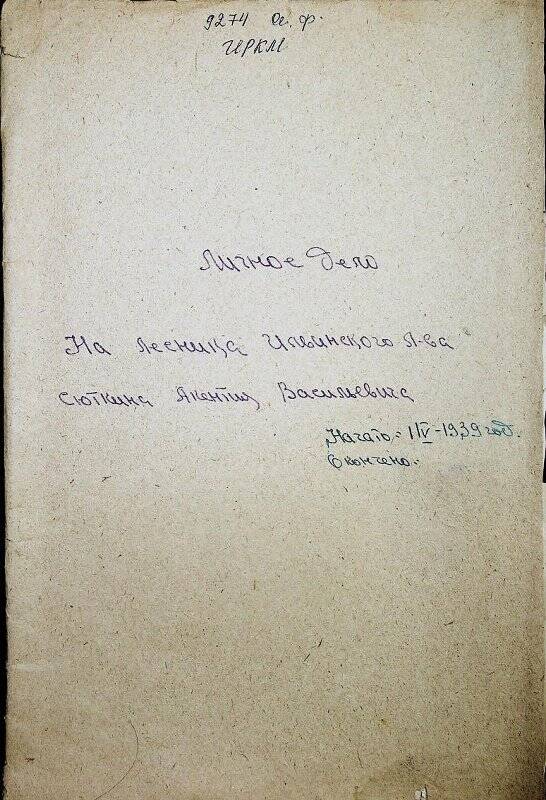 9274 Ог. ф.
ИРКМ
Личное дело
На лесника Ильинского л-ва
Сюткина Акентия Васильевича
Начато:- 1/IV-1939 год.
Окончено:-